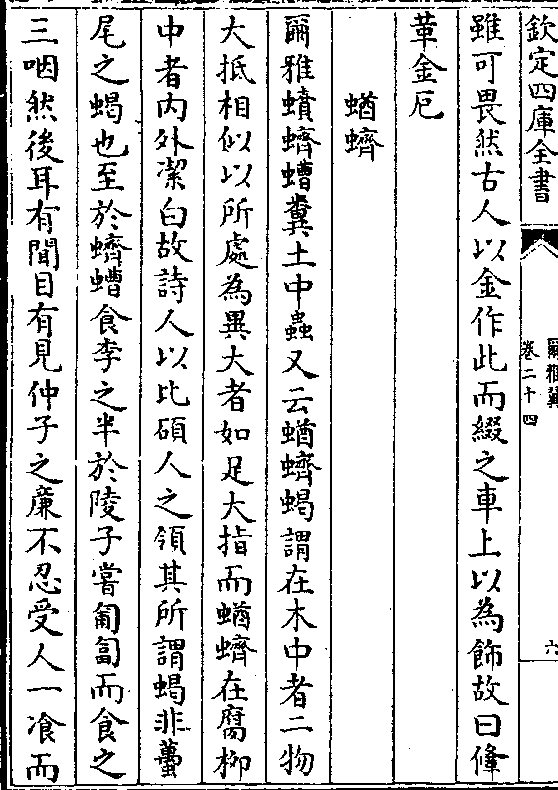 欽定四庫全書
爾雅翼
卷二十四
六
雖可畏然古人以金作此而綴之車上以為飾故曰鞗
革金厄
蝤蠐
爾雅蟦蠐螬糞土中蟲又云蝤蠐蝎謂在木中者二物
大抵相似以所處為異大者如足大指而蝤蠐在腐柳
中者内外潔白故詩人以比碩人之領其所謂蝎非蠆
尾之蝎也至於蠐螬食李之半於陵子嘗匍匐而食之
三咽然後耳有聞目有見仲子之廉不忍受人一飡而